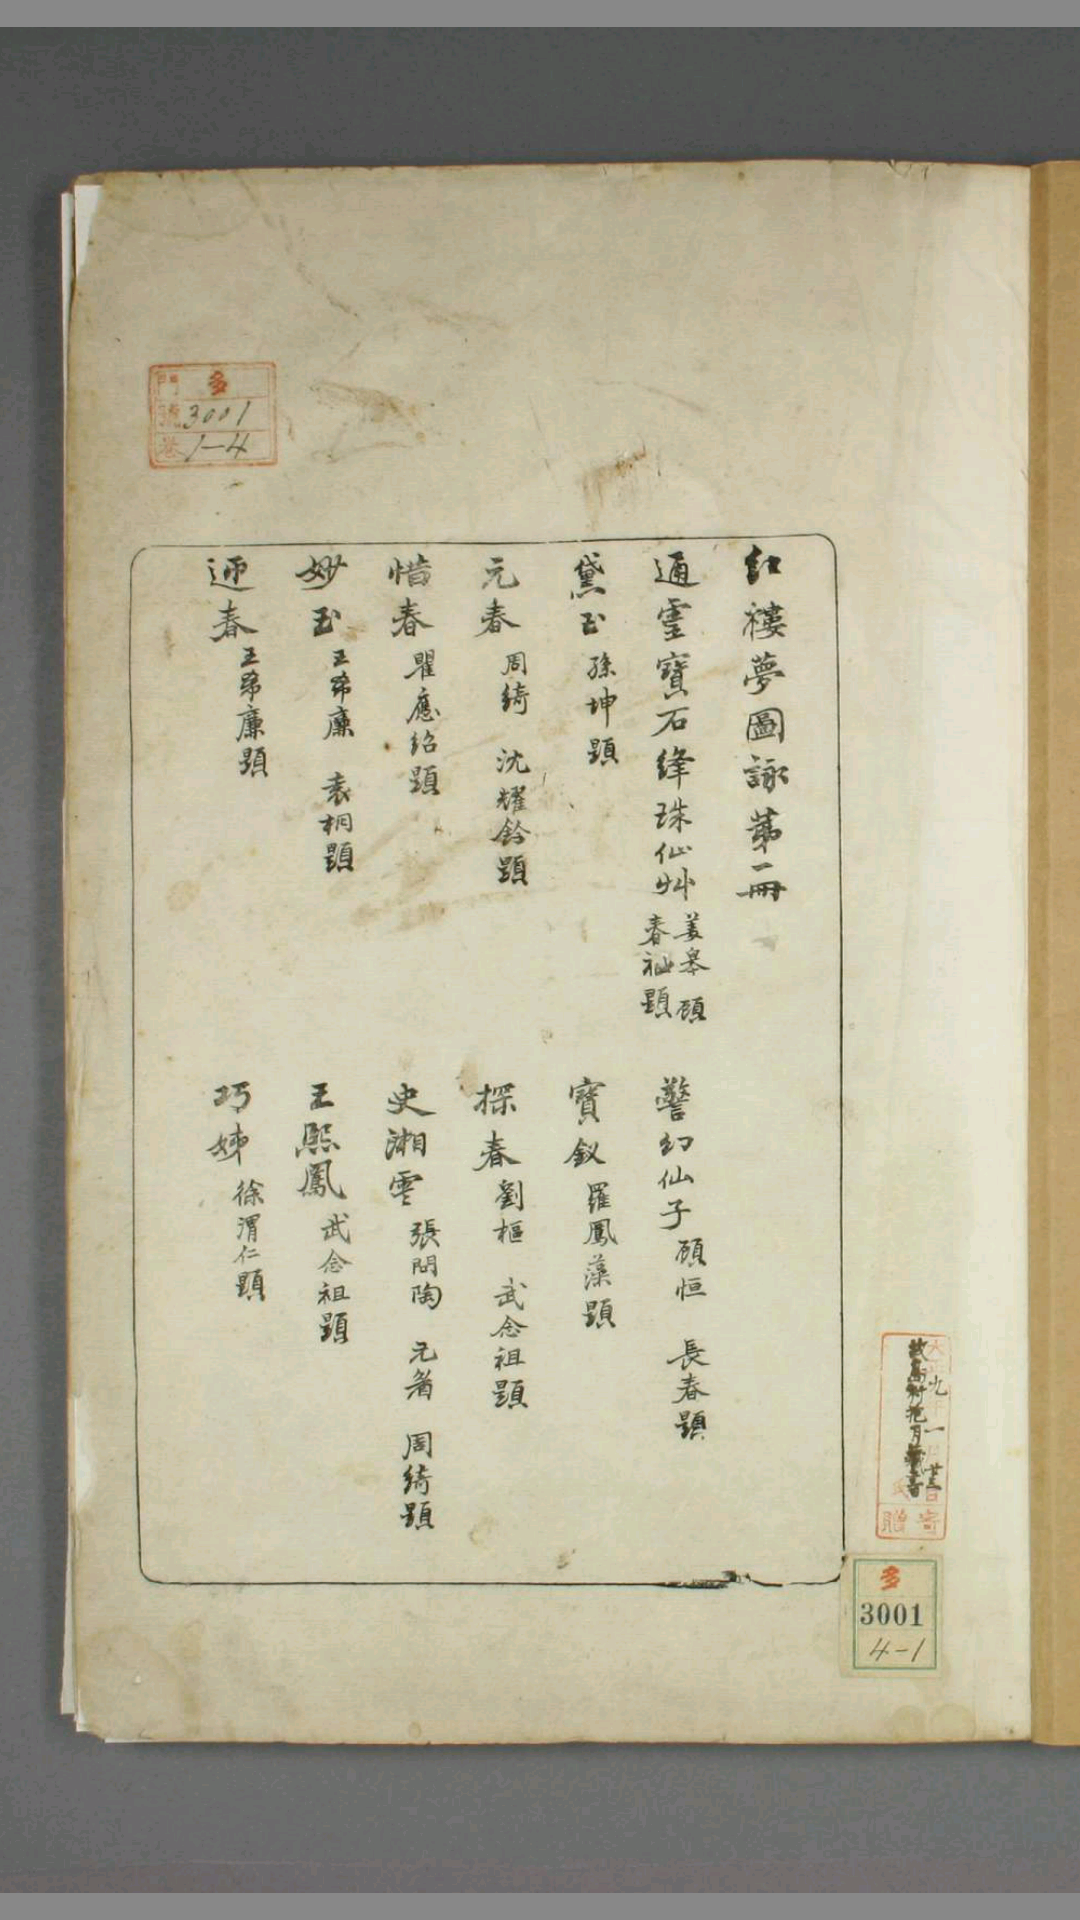 紅樓夢圖詠第一冊
通靈寶石絳珠仙艸 姜皋 顧春 祕題
警幻仙子 顧恒 長春題
黛玉 孫坤題
寶釵 羅鳳藻題
元春 周綺 沈耀鈴題
探春 劉樞 武念祖題
惜春 瞿應紹題
史湘雲 張問陶 周綺題
妙玉 王希廉 袁桐題
王熙鳳 武念祖題
迎春 王希廉題
巧姊 徐渭仁題
門 多
號 3001
卷 1-4
寄贈
多
3001
4-1